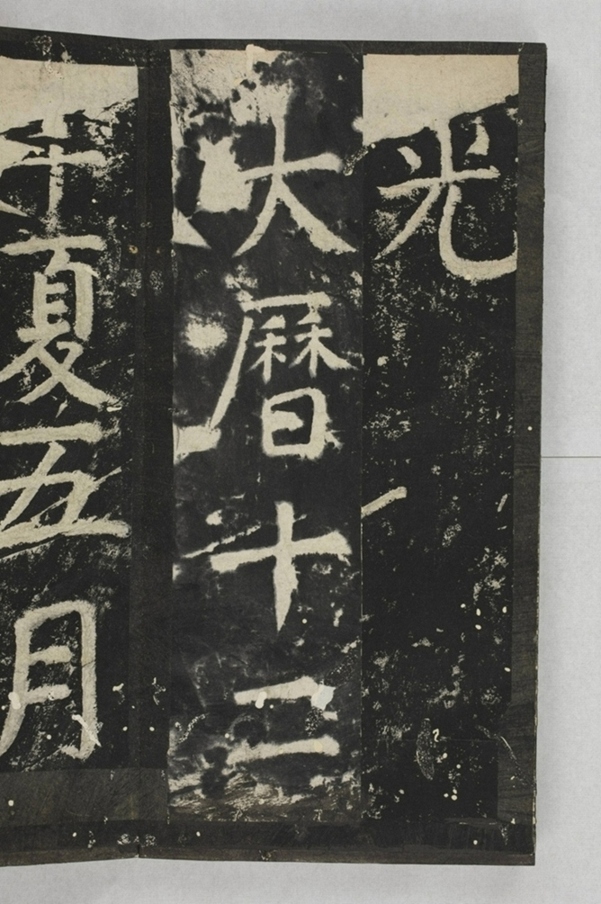 光
大曆十二
年夏五月